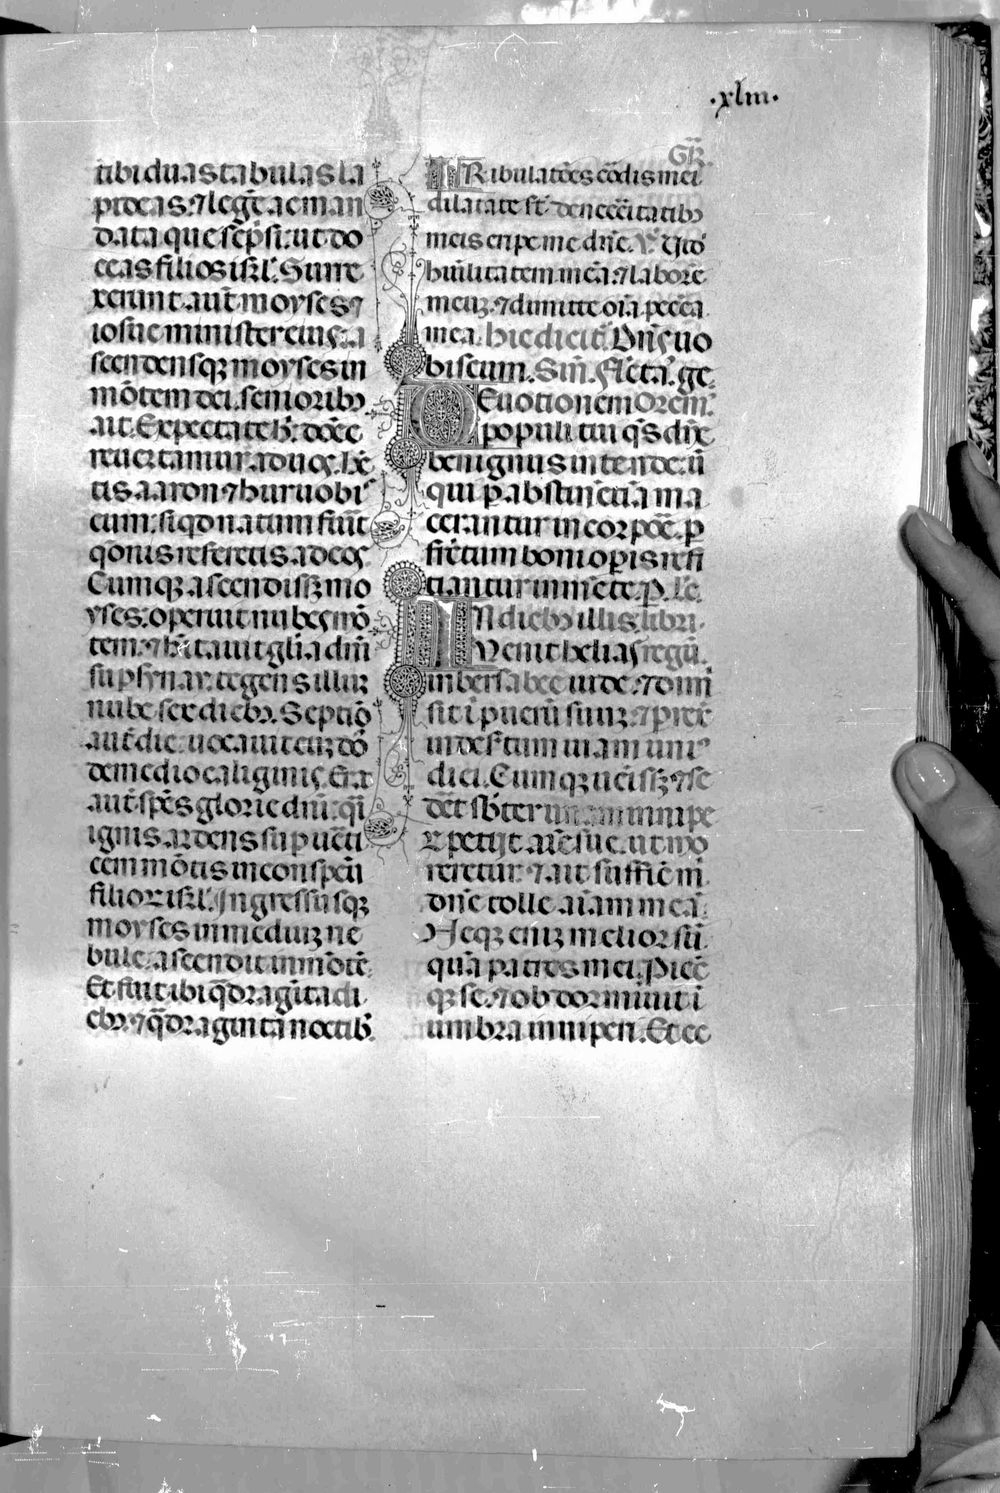 .xlııı.
tibi duas tabulas la
pideas. ⁊ legē ac man
data que scp̄si. ut do
ceas filios isrl̓. Surre
xerunt aūt moyses ⁊
iosue minister eius. a
scendensqꝫ moyses in
mōtem dei. seniorib᷒
ait. Expectate h̓. donec
reuertamur ad uos. Hētis
aaron ⁊ hur uobis
cum. si qd natum fūit
qōnis referetis ad eos.
Cumqꝫ ascendissꝫ mo
yses. operuit nubes mō
tem. ⁊ hītauit glīa dn̄i
sup synay. tegens illuꝫ
nube sex dieb᷒. Septīo
aūt die uocauit euꝫ dō
de medio caliginis. Erat
aūt spēs glorie dn̄i. q̄i
ignis ardens sup uēti
cem mōtis in conspcū
filioꝝ isrl̓. Ingressusqꝫ
moyses in mediuꝫ ne
bule. ascendit in mōtē.
Et fuit ibi q̄draginta di
eb᷒. ⁊ q̄draginta noctib᷒.
Gr̄.
TRibulatōes cōdis mei
dilatate st̄. de nccītatib᷒
meis eripe me dn̄e. V̓. Vid̓
hūilitatem meā. ⁊ laborē
meuꝫ. ⁊ dimitte oīa pccā
mea. hic dicit᷑ Dn̄s uo
biscum. Sin̄. Flcta. ge.
DEuotionem Orem̄.
populi tui qs dn̄e
benignus intende. ut
qui p abstinētia ma
cerantur in corpōe. p
fūctum boni opis refi
ciantur in mēte. P. Lc̄.
IN dieb᷒ illis. libri.
Venit helias regū.
in bersabee iude. ⁊ dimi
sit ī puerū suuꝫ. ⁊ prēx
in desꝛtum uiam uni᷒
diei. Cumqꝫ uēissꝫ ⁊ se
dēt sb̓ter unam iunipe
ꝝ petijt aīe sue. ut mo
reretur. ⁊ ait sufficē m̄.
dn̄e tolle aīam meā.
Neqꝫ eniꝫ melior sū
quā patres mei. Piecē
qꝫ se. ⁊ obdormiuit ī
umbra iuniperi. Et ec